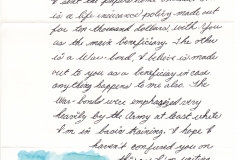 I sent two papers home. One
is a life insurance policy made out
for ten thousand dollars with you
as the main beneficiary. The other
is a War-bond, I believe is made
out to you as a beneficiary in case
anything happens to me also. The
War-bonds were emphasized very
heavily by the Army at least while
I'm in basic training. I hope I
haven't confused you on